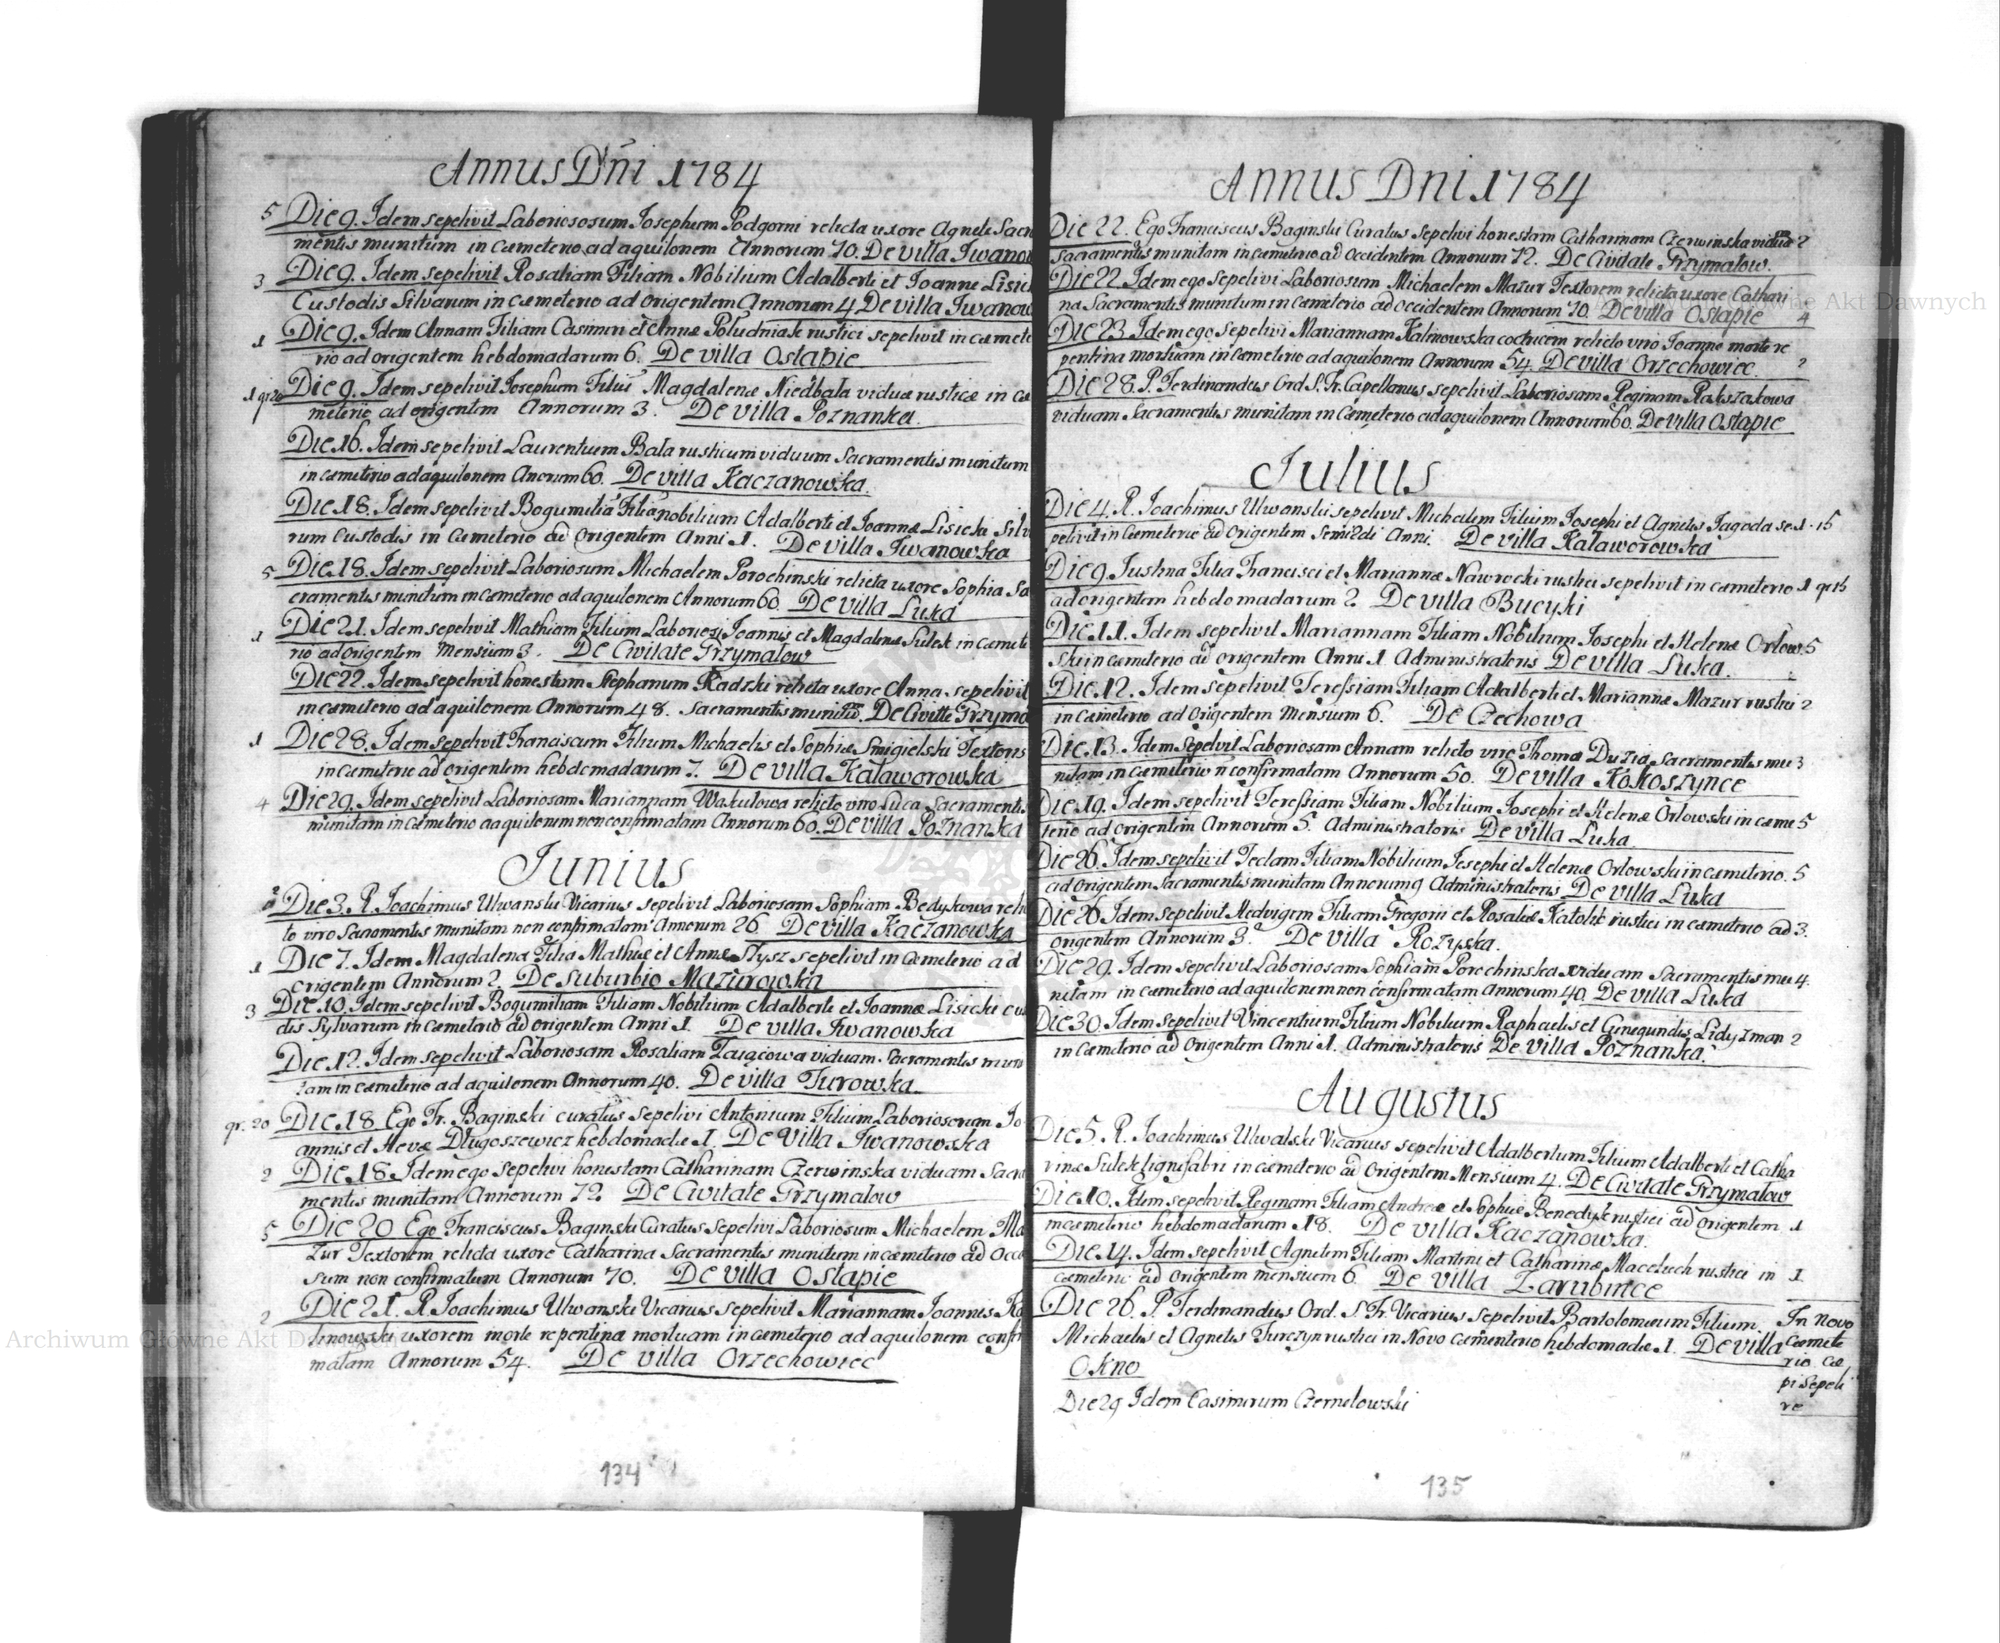 Annus Dni 1784
5 Die 9. Idem sepelivit Laboriososum Josephum Podgorni relicta uxore Agnete Sacra
mentis munitum in cæmeterio ad aquilonem Annorum 70. De villa Iwanow
3 Die 9. Idem sepelivit Rosaliam Filiam Nobilium Adalberti et Joannæ Lisic
Custodis Silvarum in cæmeterio ad origentem Annorum 4 De villa Iwanow
1 Die 9. Idem Annam Filiam Casimiri et Annæ Południak rustici sepelivit in cæmete
rio ad origentem hebdomadarum 6. De villa Ostapie
1 gr 20 Die 9. Idem sepelivit Josephum Filiũ Magdalenæ Niedbala viduæ rusticæ in cæ
meterio ad origentem Annorum 3. De villa Poznanka
Die 16. Idem sepelivit Laurentium Bala rusticum viduum Sacramentis munitum
in cæmiterio ad aquilonem Anorum 60. De villa Kaczanowka.
Die 18. Idem sepelivit Bogumilia Filia nobilium Adalberti et Joannæ Lisicki Silv
rum Custodis in Cæmeterio ad Origentem Anni 1. De villa Iwanowka
5 Die 18. Idem sepelivit Laboriosum Michaelem Porochinski relicta uxore Sophia Sa
cramentis munitum in cæmeterio ad aquilonem Annorum 60. De villa Luka
1 Die 21. Idem sepelivit Mathiam Filium Laboriosi Joannis et Magdalenæ Sulek in cæmete
rio ad origentem Mensium 3. De Civitate Grzymalow
Die 22. Idem sepelivit honestum Stephanum Radzki relicta uxore Anna sepelivit
in cæmiterio ad aquilonem Annorum 48. Sacramentis munitũ. De Civitte Grzyma
1 Die 28. Idem sepelivit Franciscum Filium Michaelis et Sophiæ Smigielski Textoris
in cæmiterio ad origentem hebdomadarum 7. De villa Kalaworowka
4 Die 29. Idem sepelivit Laboriosam Mariannam Waskulowa relicto viro Luca Sacramentis
munitam in Cæmeterio ad aquilonem non confirmatam Annorum 60. De villa Poznanka
Junius
2 Die 3. R. Joachimus Ulwanski Vicarius sepelivit Laboriosam Sophiam Bedykowa relic
to viro Sacramentis munitam non confirmatam Annorum 26 De villa Kaczanowka
1 Die 7. Idem Magdalena Filia Mathiæ et Annæ Hysz sepelivit in Cæmeterio ad
origentem Annorum 2. De suburbio Mazurowka
3 Die 10. Idem sepelivit Bogumiliam Filiam Nobilium Adalberti et Joannæ Lisicki cu
dis Sylvarum in Cæmeterio ad origentem Anni 1. De villa Iwanowka
Die 12. Idem sepelivit Laboriosam Rosaliam Zaiącowa viduam Sacramentis muni
tam in cæmeterio ad aquilonem Annorum 40. De villa Turowka
gr. 20 Die 18 Ego Fr. Baginski curatus sepelivi Antonium Filium Laboriosorum Jo
annis et Hevæ Długoszewicz hebdomadæ 1. De Villa Iwanowska
2 Die 18 Idem ego sepelivi honestam Catharinam Czerwinska viduam Sacra
mentis munitam Annorum 72 De Civitate Grzymałow
5 Die 20 Ego Franciscus Baginski Curatus Sepelivi Laboriosum Michaelem Ma
zur Textorem relicta uxore Catharina Sacramentis munitum in cæmiterio ad Occa
sum non confirmatum Annorum 70. De villa Ostapie
2 Die 21. R. Joachimus Ulwanski Vicarius sepelivit Mariannam Joannis Ka
linowski uxorem morte repentina mortuam in cæmeterio ad aquilonem confir
matam Annorum 54. De villa Orzechowiec
134
Annus Dni 1784
Die 22. Ego Franciscus Baginski Curatus Sepelivi honestam Catharinam Czerwinska viduã 2
Sacramentis munitam in cæmeterio ad Occidentem Annorum 72. De Civitate Grzymałow.
Die 22. Idem ego Sepelivi Laboriosum Michaelem Mazur Textorem relicta uxore Cathari
na Sacramentis munitum in Cæmeterio ad occidentem Annorum 70. De villa Ostapie 4
Die 23. Idem ego sepelivi Mariannam Kalinowska coctricem relicto viro Joanne morte re
pentina mortuam in cæmeterio ad aquilonem Annorum 54. De villa Orzechowiec. 2
Die 28. P. Ferdinandus Ord. S. Fr. Capellanus sepelivit Laboriosam Reginam Rakszakowa
viduam Sacramentis munitam in Cæmeterio ad aquilonem Annorum 60. De villa Ostapie
Julius
Die 4. R. Joachimus Ulwanski sepelivit Michalem Filium Josephi et Agnetis Jagoda se 1.15
pelivit in Cæmeterio ad Origentem Semi 2di Anni. De villa Kalaworowka
Die 9. Justina Filia Francisci et Mariannæ Nawrocki rustici sepelivit in cæmeterio 1 gr 15
ad origentem hebdomadarum 2 De villa Bucyki
Die 11. Idem sepelivit Mariannam Filiam Nobilium Josephi et Helenæ Orlow 5
ski in cæmiterio ad origentem Anni 1. Administratoris De villa Luka.
Die 12. Idem sepelivit Teressiam Filiam Adalberti et Mariannæ Mazur rustici 2
in Cæmeterio ad Origentem Mensium 6. De Czechowa
Die 13. Idem Sepelivit Laboriosam Annam relicto viro Thoma Duzia Sacramentis mu 3
nitam in cæmiterio ñ confirmatam Annorum 50. De villa Kokoszynce
Die 19. Idem sepelivit Teressiam Filiam Nobilium Josephi et Helenæ Orlowski in cæme 5
terio ad origentem Annorum 5. Administratoris De villa Luka
Die 26. Idem sepelivit Teclam Filiam Nobilium Josephi et Helenæ Orlowski in cæmiterio. 5
ad Origentem Sacramentis munitam Annorum 9 Administratoris De villa Luka
Die 26 Idem sepelivit Hedvigem Filiam Gregorii et Rosaliæ Katolik rustici in cæmetrio ad 3.
Origentem Annorum 3. De Villa Rozyska.
Die 29. Idem sepelivit Laboriosam Sophiam Porochinska viduam Sacramentis mu 4.
nitam in cæmeterio ad aquilonem non confirmatam Annorum 40. De villa Luka
Die 30. Idem Sepelivit Vincentium Filium Nobilium Raphaelis et Cunegundis Lidyzman 2
in Cæmeterio ad Origentem Anni 1. Administratoris De villa Poznanka.
Augustus
Die 5. R. Joachimus Ulwalski Vicarius sepelivit Adalbertum Filium Adalberti et Catha
rinæ Sulek lignifabri in cæmiterio ad Origentem Mensium 4. De Civitate Grzymałow
Die 10. Idem sepelivit Reginam Filiam Andreæ et Sophiæ Benedyk rustici ad Origentem 1
in cæmeterio hebdomadarum 18. De villa Kaczanowka.
Die 14. Idem sepelivit Agnetem Filiam Martini et Catharinæ Maceluch rustici in 1
cæmeterio ad Origentem mensium 6. De villa Zarubince
Die 26. P. Ferdinandus Ord. S. Fr. Vicarius Sepelivit Bartolomæum Filium
Michaelis et Agnetis Turczyn rustici in Novo cæmenterio hebdomadæ 1. De villa
Okno
In Novo
Cæmete
rio Cæ
pi Sepeli
re
Die 29 Idem Casimirum Czernelowski
135
Archiwum Główne Akt Dawnych